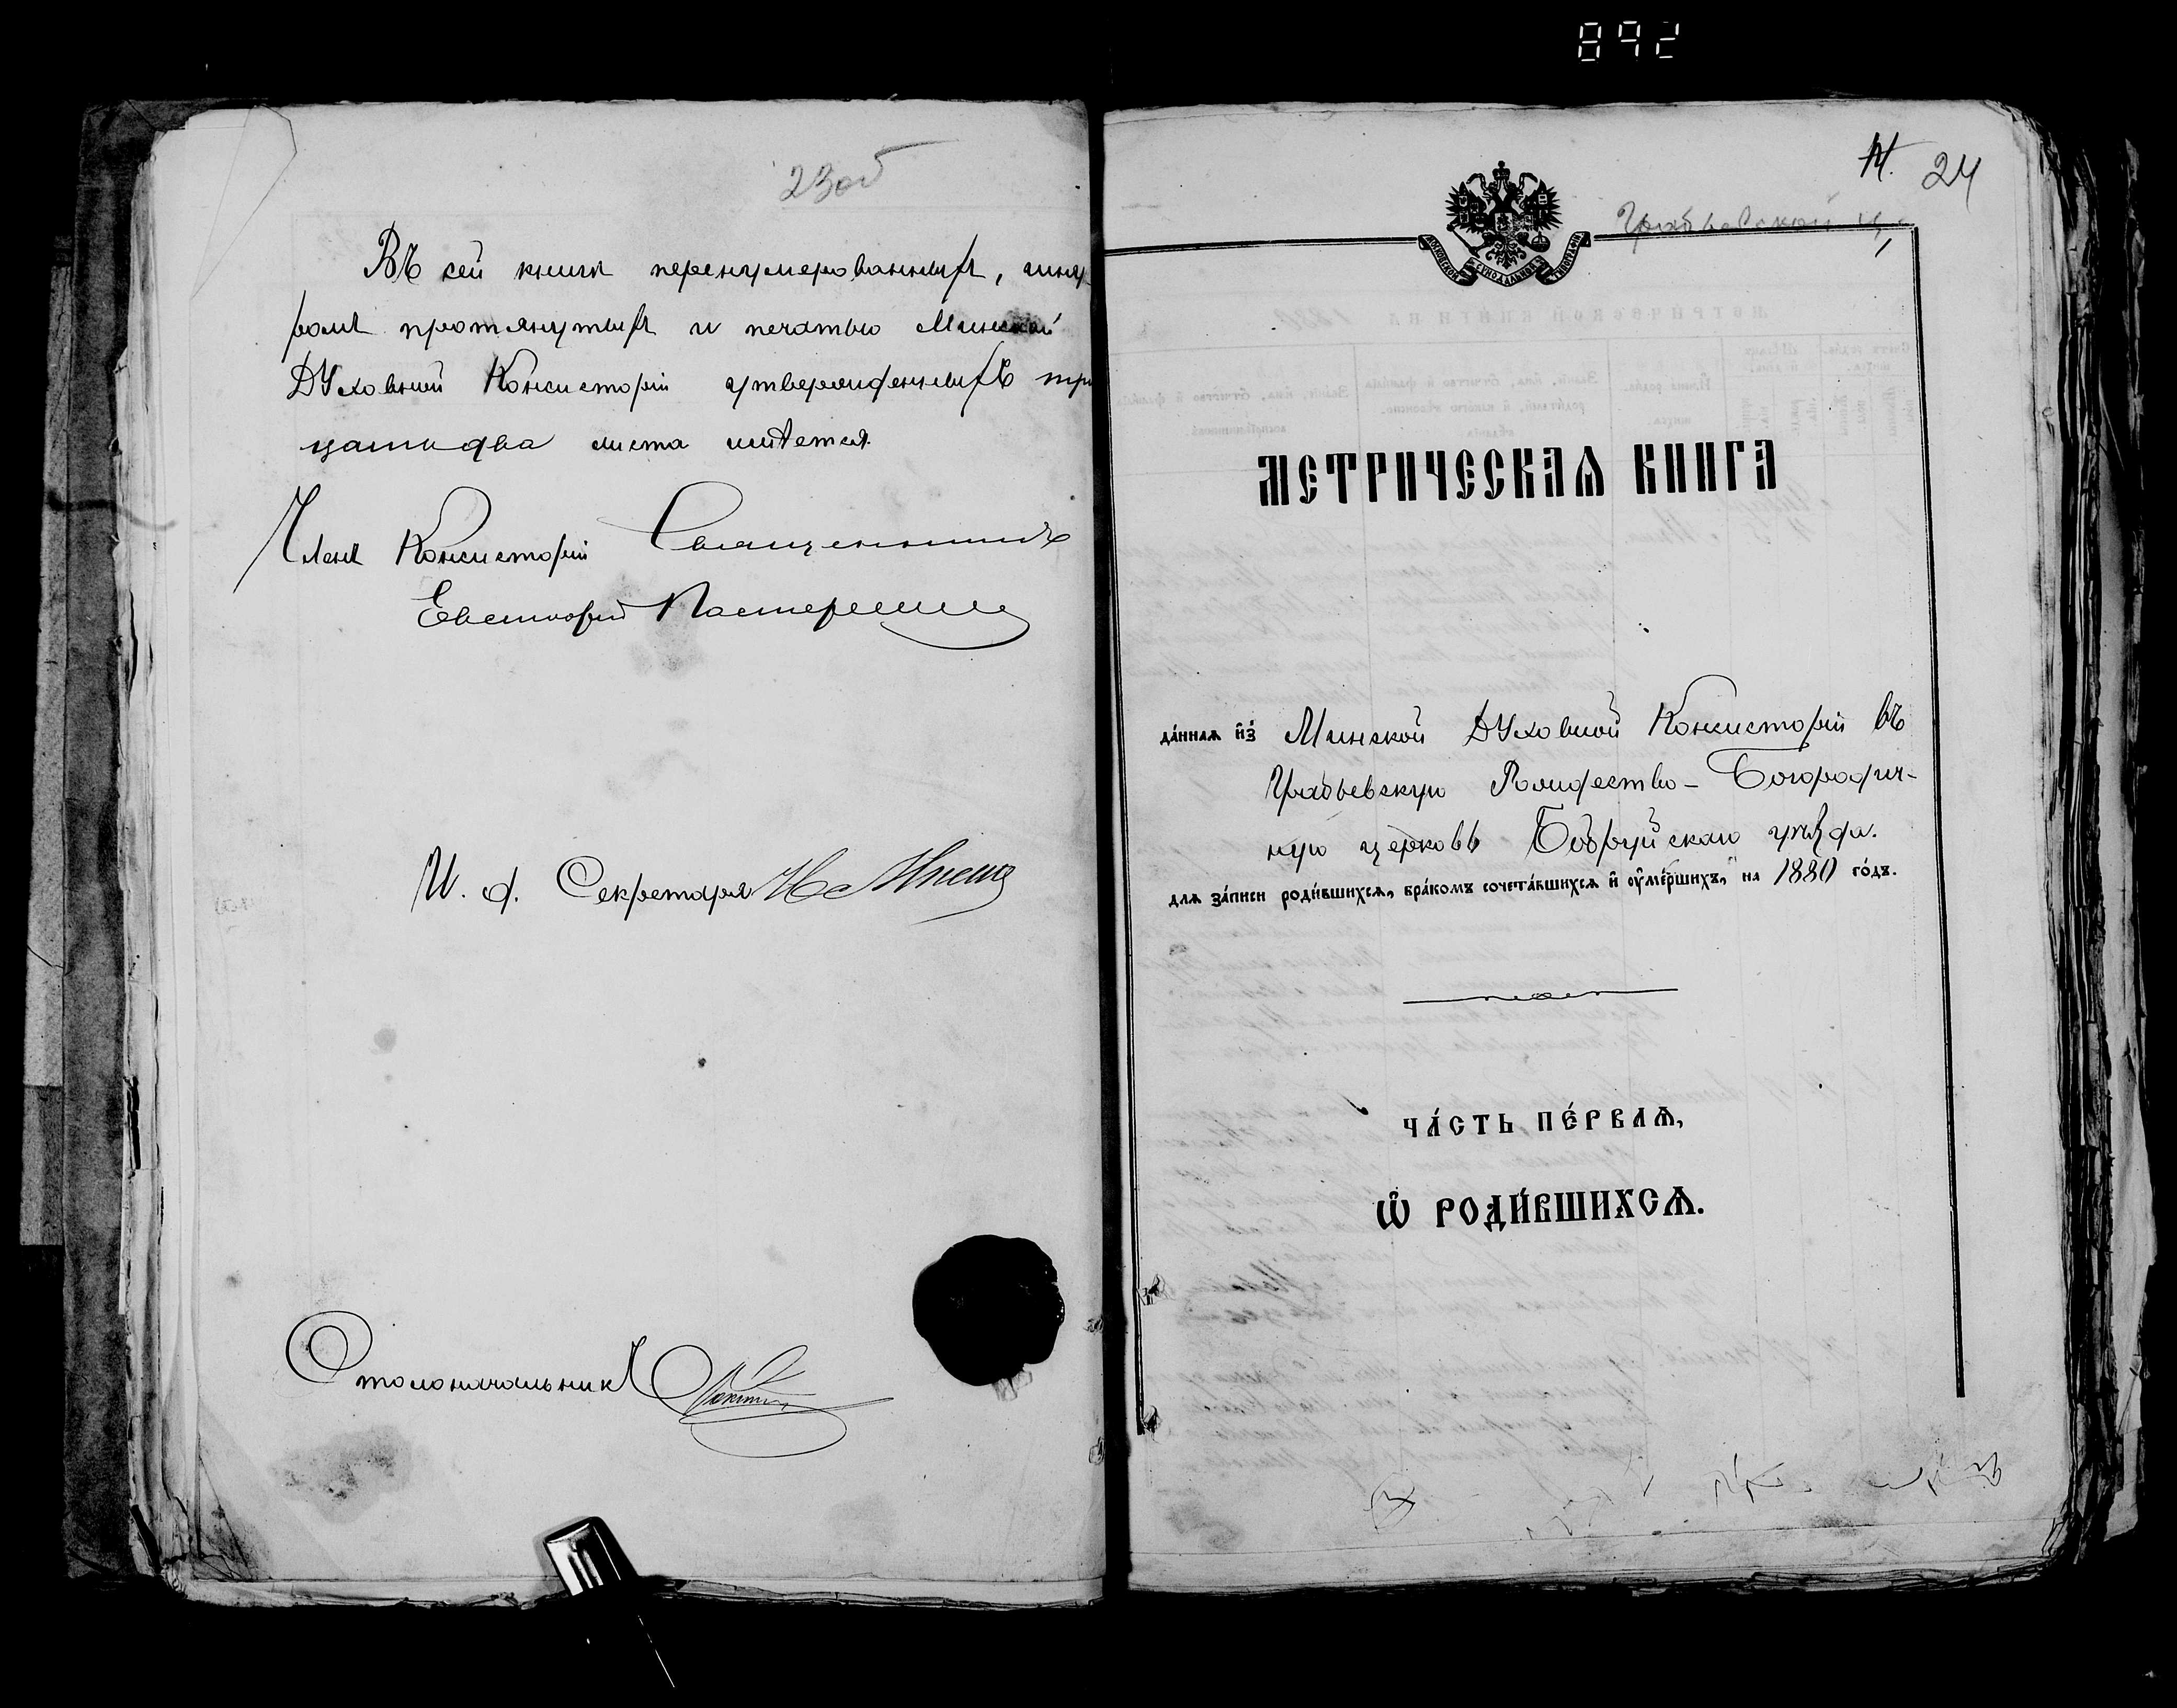 892
23об
Въ сей книгѣ перенумерованныхъ, шну-
ромъ протянутыхъ и печатью Минской
Духовной Консисторіи утвержденныхъ три
цать два листа имѣется.
Членъ Консисторіи Священникъ
Евстафій
И. д. Секретаря
Столоначальникъ
24
Грабьевской ц.
МОСКОВСКОЙ СѴНОДАЛЬНОЙ ТИПОГРАФІИ
МЕТРИЧЕСКАѦ КНИГА
да́ннаѧ и҆з̾ Минской Духовной Консисторіи въ
Грабьевскую Рождество-Богородич-
ную церковь Бобруйскаго уѣзда.
длѧ за́писи роди́вшихсѧ, бра́комъ сочета́вшихсѧ и҆ ᲂу҆ме́ршихъ, на 1880 го́дъ.
ЧА́СТЬ ПЕ́РВАѦ,
Ѡ҆ РОДИ́ВШИХСѦ.